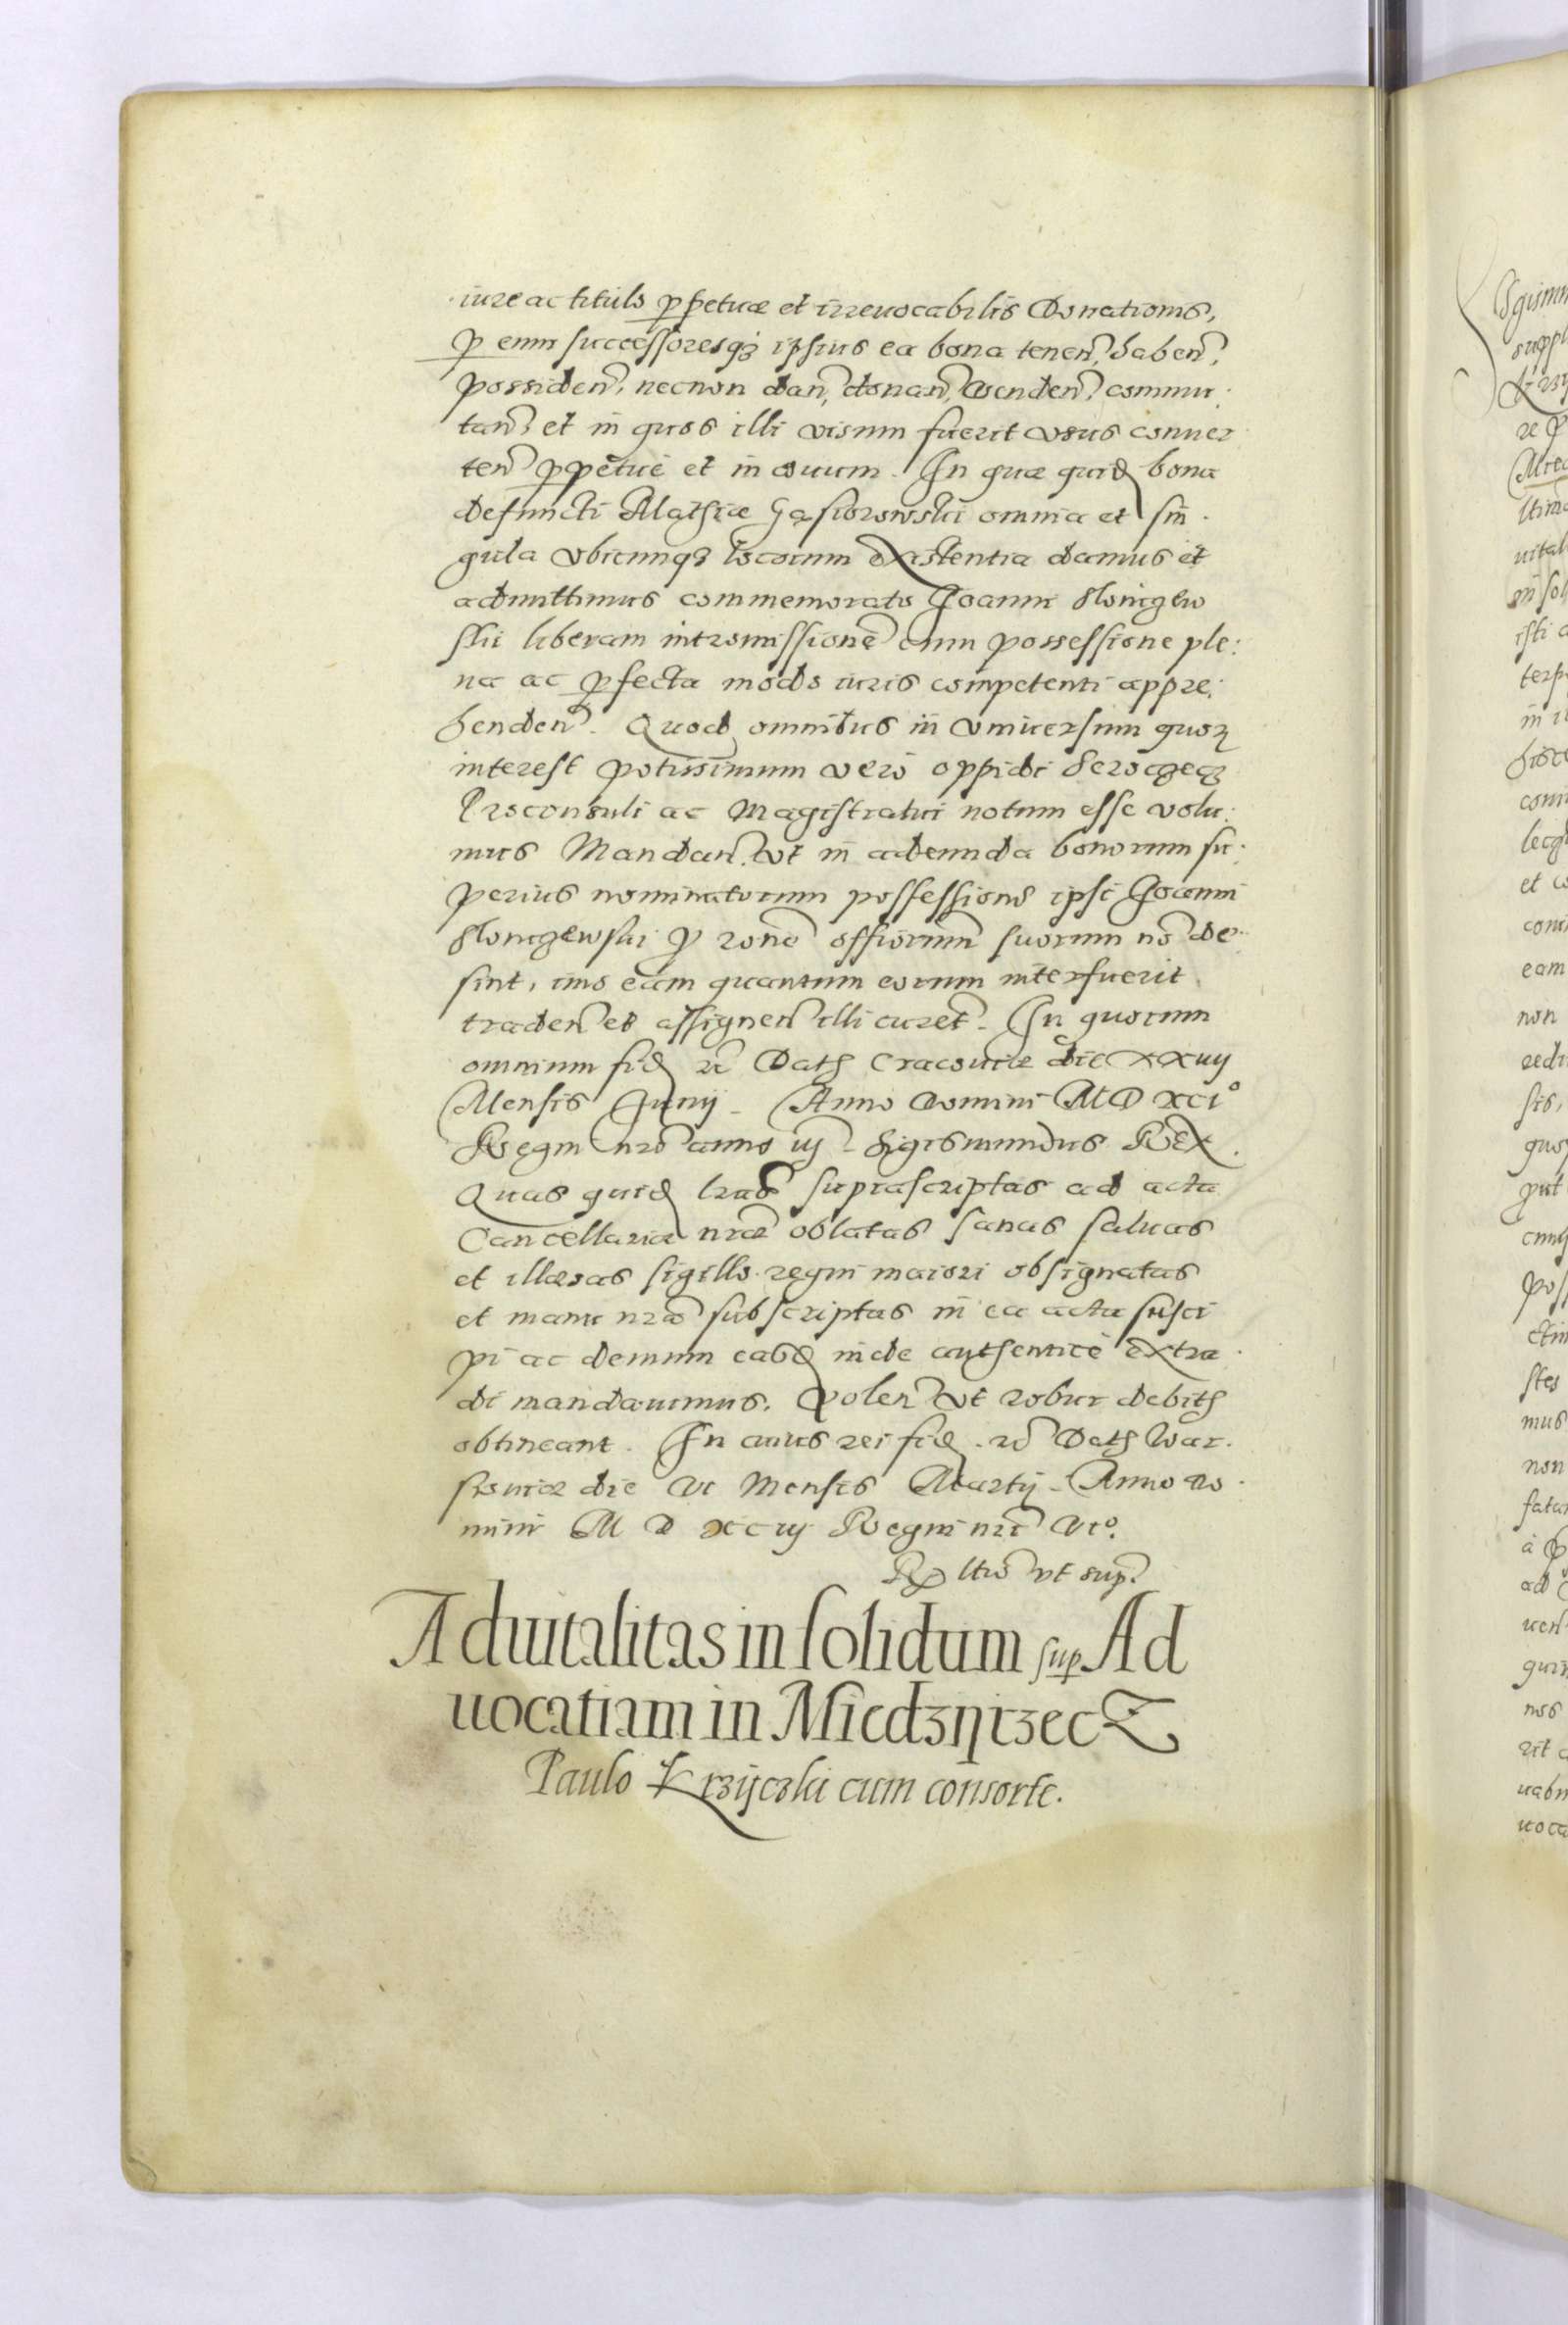 iure ac titulo ppetuæ et irreuocabilis Donationis,
p eum successoresqʒ ipsius ea bona tenen̄, haben̄,
possiden̄, necnon dan̄, donan̄, venden̄, commu:
tan̄, et in quos illi visum fuerit vsus conuer
ten̄ ppetuè et in æuum. In quæ quid bona
defuncti Mathiæ Gąsiorowski omnia et sin
gula vbicunqʒ locorum existentia damus et
admittimus commemorato Joanni
liberam intromissionē cum possessione ple:
na ac pfecta modo iuris competenti appre:
henden̄. Quod omnibus in vniuersum quoꝝ
interest potissimum verò oppidi Seroczecʒ
Proconsuli ac Magistratui notum esse volu:
mus Mandan̄, vt in adeunda bonorum su:
perius nominatorum possessione ipsi Joanni
p rōne officiorum suorum nō de
sint, imo eam quantum eorum interfuerit
traden̄ et assignen̄ illi curet. In quorum
omnium fid rc̄ Datʒ Cracouiæ die xxuij
Mensis Junij. Anno Domini M D xci°
Regni nrō anno iij Sigismundus Rex.
Quas quid lrās suprascriptas ad acta
Cancellariæ nræ oblatas sanas saluas
et illæsas sigillo regni maiori obsignatas
et manu nrā subscriptas in ea acta susci
pi ac demum easd inde authenticè extra
di mandauimus. Volen̄ vt robur debitʒ
obtineant. In cuius rei fid. rc̄ Datʒ War
souiæ die vi Mensis Martij. Anno Do
mini M D xc iij Regni nrī vi°.
vt sup.
Aduitalitas in solidum sup Ad
uocatiam in Miedzyrzecz
Paulo Krzyczki cum consorte.